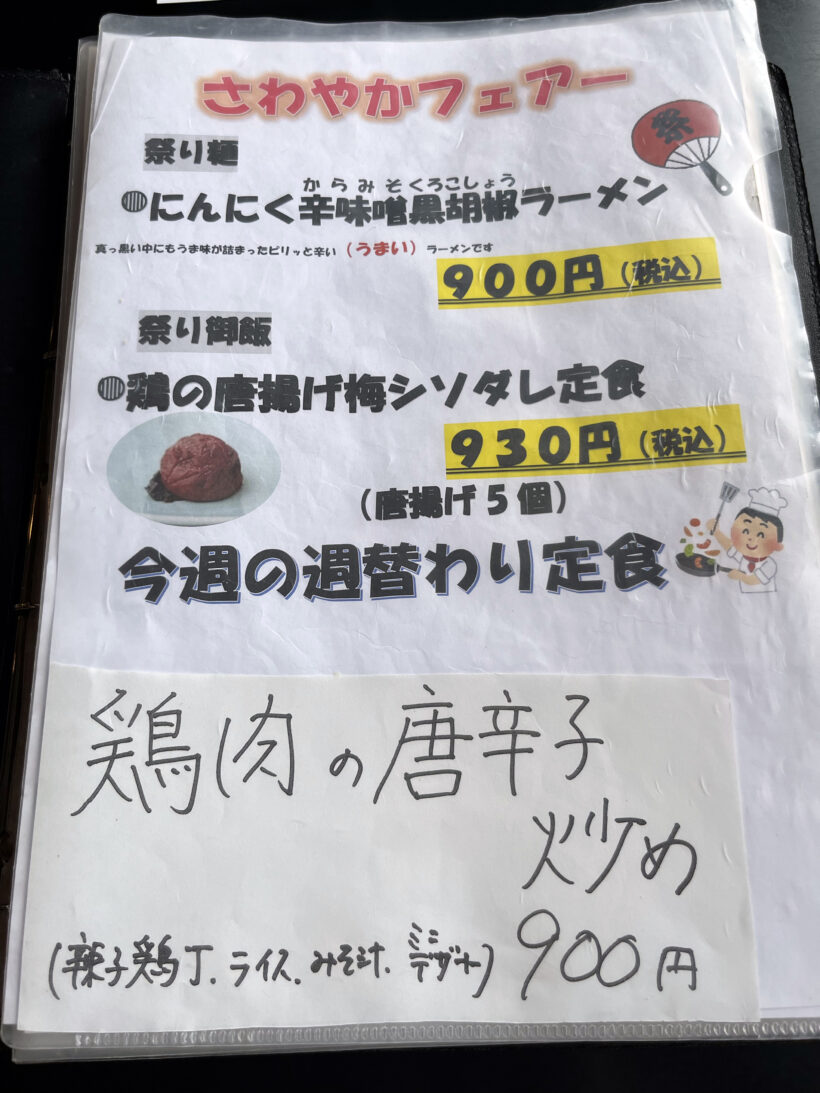 さわやかフェアー
祭
祭り麺
からみそくろこしょう
◍にんにく辛味噌黒胡椒ラーメン
真っ黒い中にもうま味が詰まったピリッと辛い（うまい）ラーメンです
900円（税込）
祭り御飯
◍鶏の唐揚げ梅シソダレ定食
930円（税込）
（唐揚げ5個）
今週の週替わり定食
鶏肉の唐辛子
炒め
(辣子鶏丁.ライス.みそ汁.ミニデザート) 900円